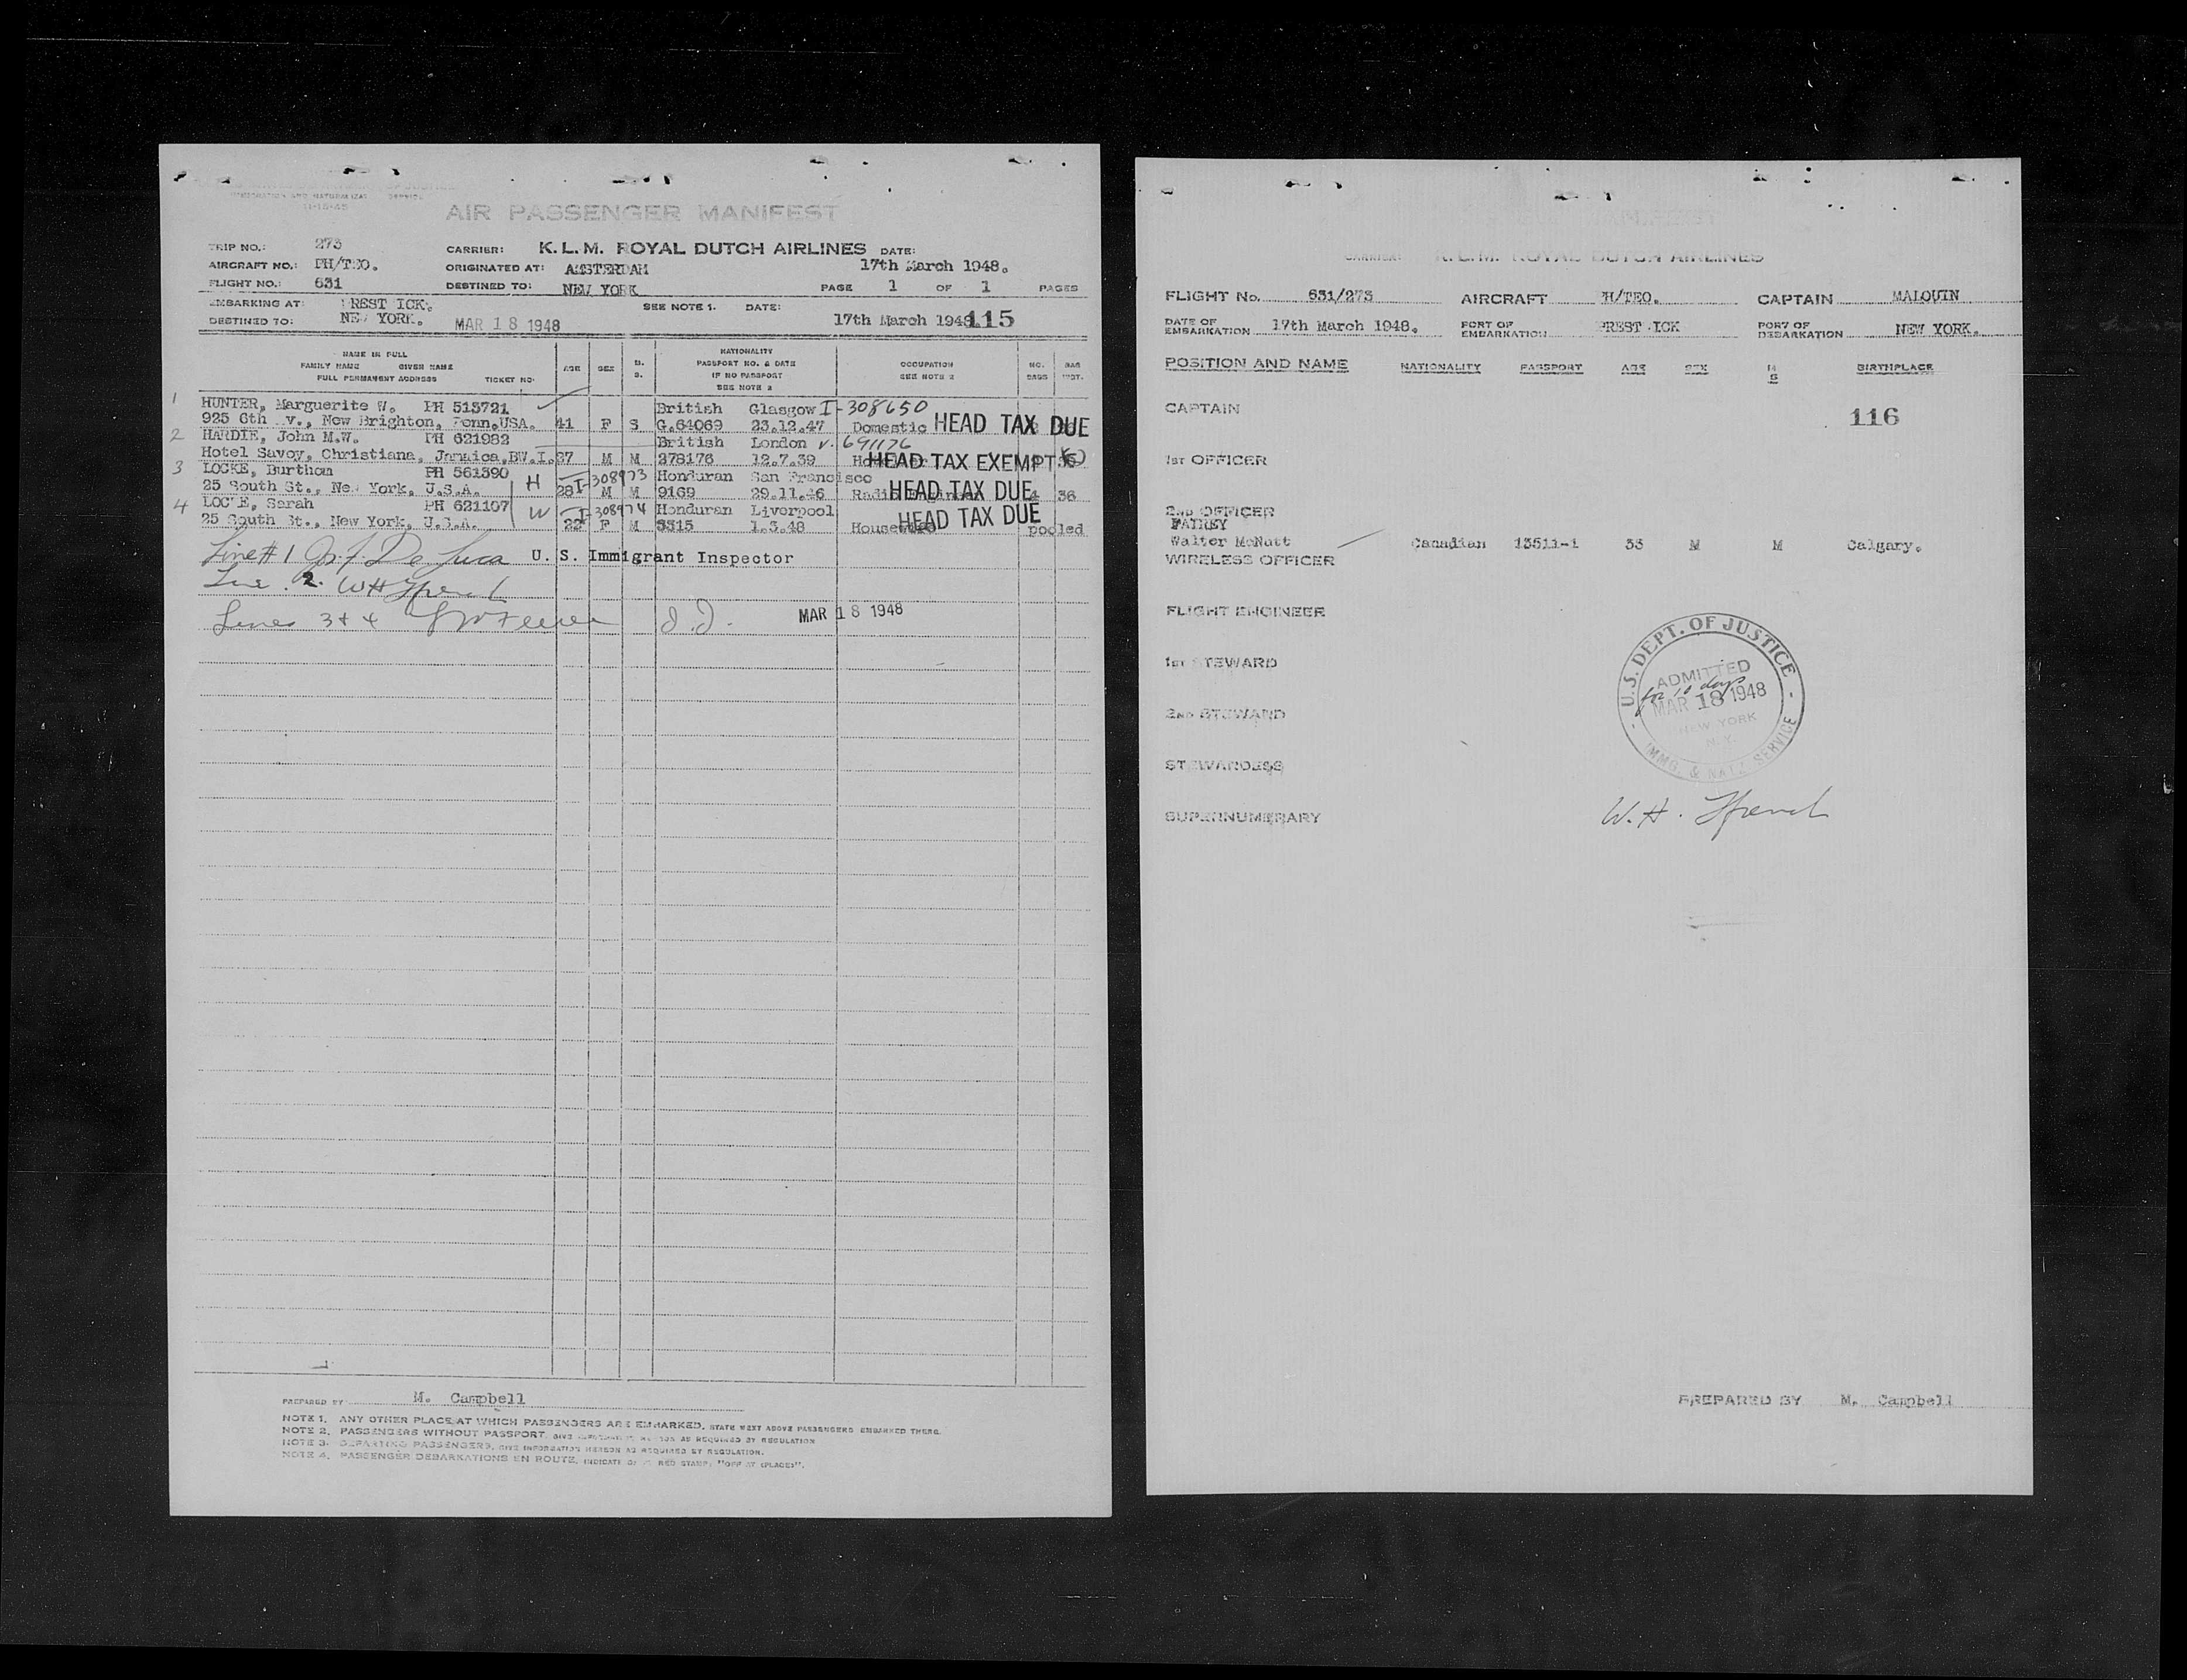 IMMIGRATION AND NATURALIZATION SERVICE
11-15-45
AIR PASSENGER MANIFEST
TRIP NO.: 273 CARRIER: K.L.M. ROYAL DUTCH AIRLINES DATE:
AIRCRAFT NO.: PH/TEO. ORIGINATED AT: AMSTERDAM 17th March 1948.
FLIGHT NO.: 631 DESTINED TO: NEW YORK PAGE 1 OF 1 PAGES
EMBARKING AT: PREST ICK. SEE NOTE 1. DATE:
DESTINED TO: NEW YORK. MAR 18 1948 17th March 1948. 115
NAME IN FULL
FAMILY NAME GIVEN NAME
FULL PERMANENT ADDRESS TICKET NO.
AGE SEX M. S.
NATIONALITY
PASSPORT NO. & DATE
IF NO PASSPORT
SEE NOTE 2
OCCUPATION
SEE NOTE 2
NO. BAGS
BAG WGT.
1 HUNTER, Marguerite W. PH 513721 British Glasgow I-308650
925 6th Av., New Brighton, Penn.USA. 41 F S G.64069 23.12.47 Domestic HEAD TAX DUE
2 HARDIE, John M.W. PH 621982 British London v. 691176
Hotel Savoy, Christiana, Jamaica,BW.I. 37 M M 278176 12.7.39 HEAD TAX EXEMPT
3 LOCKE, Burthom PH 561390 H I-308973 Honduran San Francisco
25 South St., New York, U.S.A. 28 M M 9169 29.11.46 Radio Engineer HEAD TAX DUE 4 36
4 LOCKE, Sarah PH 621107 W I-308974 Honduran Liverpool
25 South St., New York, U.S.A. 22 F M 3315 1.3.48 Housewife HEAD TAX DUE pooled
Line # 1 De Luca U. S. Immigrant Inspector
Line 2. W H French
Lines 3 + 4 MAR 18 1948
PREPARED BY M. Campbell
NOTE 1. ANY OTHER PLACE AT WHICH PASSENGERS ARE EMBARKED, STATE NEXT ABOVE PASSENGERS EMBARKED THERE.
NOTE 2. PASSENGERS WITHOUT PASSPORT, GIVE INFORMATION HEREON AS REQUIRED BY REGULATION
NOTE 3. DEPARTING PASSENGERS, GIVE INFORMATION HEREON AS REQUIRED BY REGULATION.
NOTE 4. PASSENGER DEBARKATIONS EN ROUTE, INDICATE BY RED STAMP: "OFF AT (PLACE)".
MANIFEST
CARRIER: K.L.M. ROYAL DUTCH AIRLINES
FLIGHT No. 631/273 AIRCRAFT PH/TEO. CAPTAIN MALOUIN
DATE OF EMBARKATION 17th March 1948. PORT OF EMBARKATION PREST ICK PORT OF DEBARKATION NEW YORK.
POSITION AND NAME NATIONALITY PASSPORT AGE SEX M S BIRTHPLACE
CAPTAIN
116
1ST OFFICER
2ND OFFICER
Walter McNatt Canadian 13511-1 33 M M Calgary.
WIRELESS OFFICER
FLIGHT ENGINEER
1ST STEWARD
2ND STEWARD
STEWARDESS
SUPERNUMERARY
U.S. DEPT. OF JUSTICE
ADMITTED
for 10 days
MAR 18 1948
NEW YORK
N.Y.
IMMG. & NATZ. SERVICE
W. H. French
PREPARED BY M. Campbell